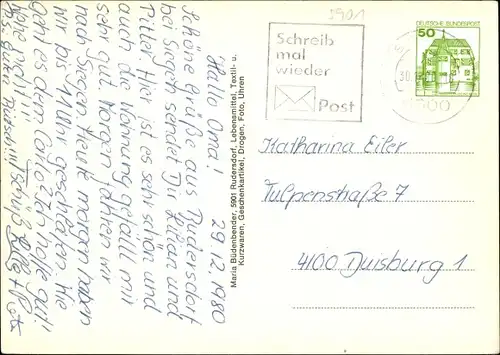 5901
Schreib
mal
wieder
Post
DEUTSCHE BUNDESPOST
50
Hallo Oma! 29.12.1980
Schöne Grüße aus Rudersdorf
bei Siegen sendet Dir Lilian und
Peter. Hier ist es sehr schön und
auch die Wohnung gefällt mir
sehr gut. Morgen fahren wir
nach Siegen. Heute morgen haben
wir bis 11 Uhr geschlafen. Wie
geht es dem Ich hoffe gut!
Alles guten Rutsch!!! Tschüß
Maria Büdenbender, 5901 Rudersdorf, Lebensmittel, Textil- u.
Kurzwaren, Geschenkartikel, Drogen, Foto, Uhren
Katharina Eiler
Tulpenstraße 7
4100 Duisburg 1